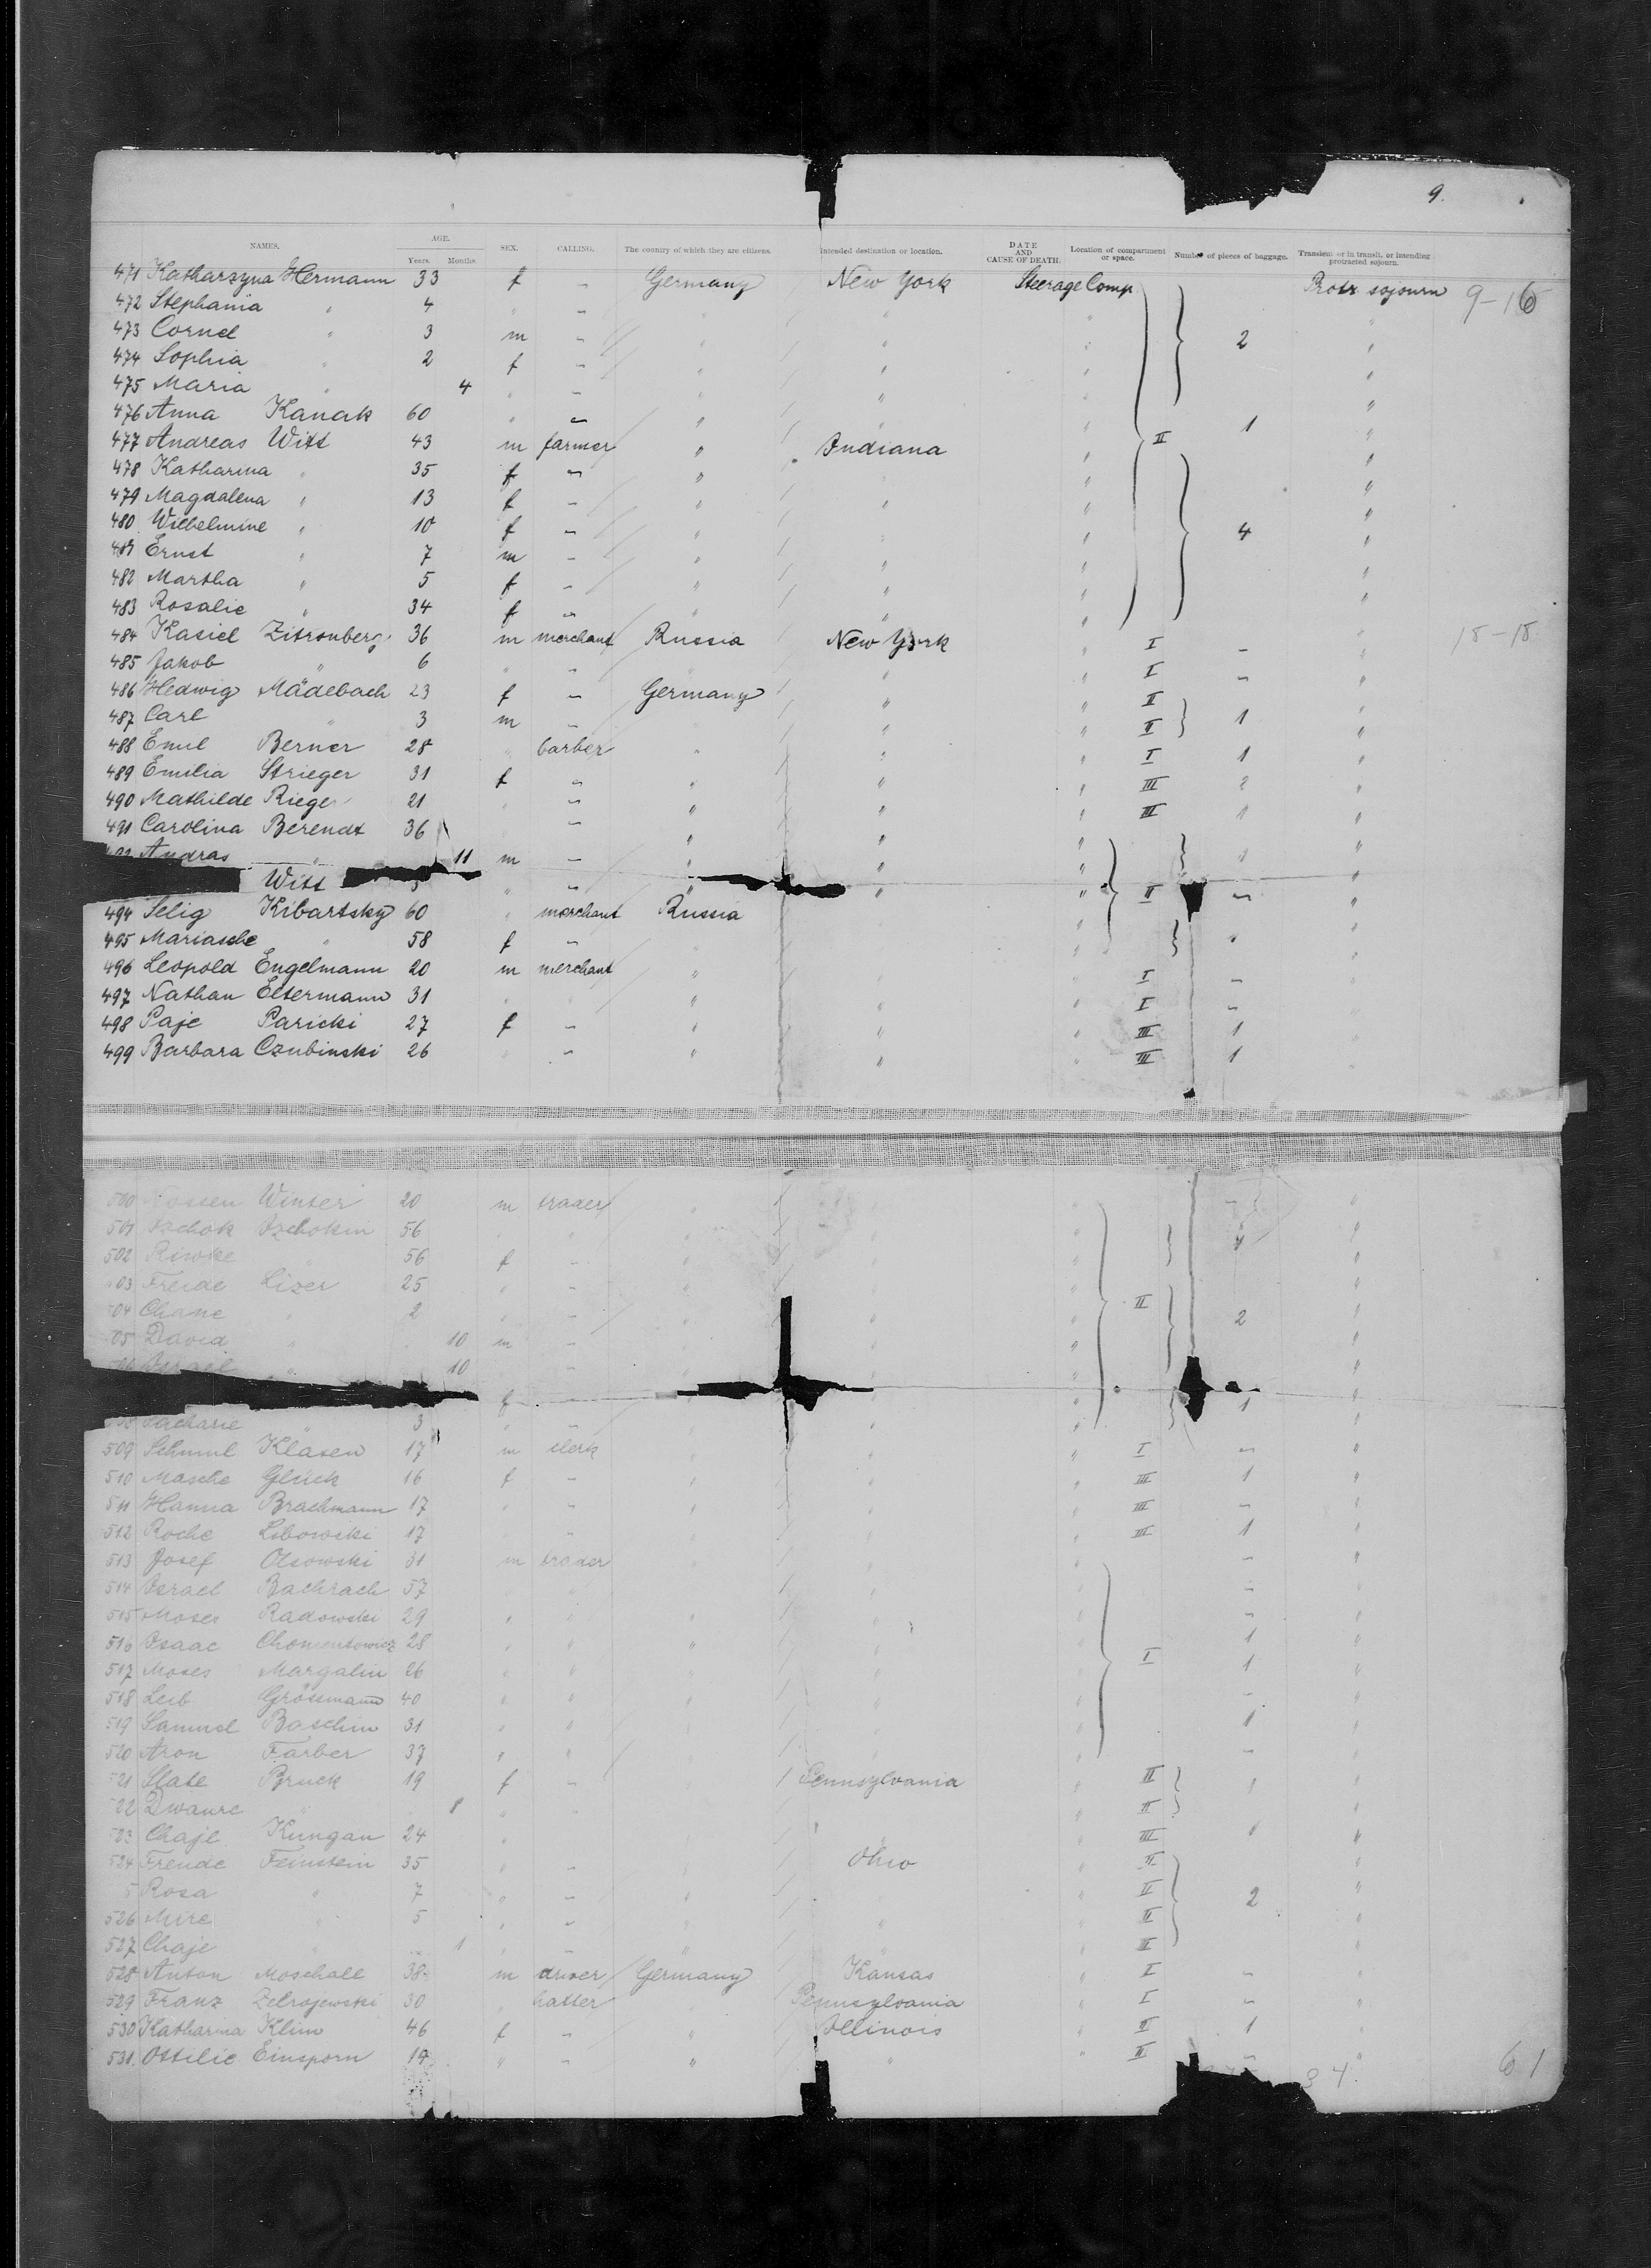 9.
NAMES. AGE. SEX. CALLING. The country of which they are citizens. Intended destination or location. DATE AND CAUSE OF DEATH. Location of compartment or space. Number of pieces of baggage. Transient or in transit, or intending protracted sojourn.
Years. Months.
471 Katharzyna Hermann 33 f – Germany New York Steerage Comp Protr sojourn 9-16
472 Stephania " 4 " – " " " "
473 Cornel " 3 m – " " " 2 "
474 Sophia " 2 f – " " " "
475 Maria " 4 " – " " " "
476 Anna Kanak 60 " – " " " 1 "
477 Andreas Witt 43 m farmer " Indiana " II "
478 Katharina " 35 f – " " " "
479 Magdalena " 13 f – " " " "
480 Wilhelmine " 10 f – " " " 4 "
481 Ernst " 7 m – " " " "
482 Martha " 5 f – " " " "
483 Rosalie " 34 f – " " " "
484 Kasiel Zitronberg 36 m merchant Russia New York " I – " 18-18
485 Jakob " 6 " – " " I – "
486 Hedwig Mädebach 23 f – Germany " " II "
487 Carl " 3 m – " " II 1 "
488 Emil Berner 28 " barber " " " I 1 "
489 Emilia Strieger 31 f – " " " III 2 "
490 Mathilde Rieger 21 " – " " " III 1 "
491 Carolina Berendt 36 – " " " "
Andras " 11 m – " " " 1 "
Witt " – " " " II – "
494 Selig Kibartsky 60 " merchant Russia " "
495 Mariasche " 58 f – " " "
496 Leopold Engelmann 20 m merchant " " I –
497 Nathan Eltermann 31 " " " " I –
498 Paje Paricki 27 f – " " " III 1
499 Barbara Czubinski 26 " – " " " III 1
500 Winter 20 m trader " " – "
501 56 " " " " " "
502 Riwke " 56 f – " " " "
03 Freide Lizer 25 " – " " " "
04 Chane " 2 " – " " " II 2 "
05 David " 10 m – " " " "
10 – " " " "
f – " " " 1 "
Zacharie " 3 " – " " " "
509 Schmul Klasen 17 m clerk " " " I – "
510 Masche Glück 16 f – " " " III 1 "
511 Hanna Brachmann 17 " – " " " III – "
512 Roche Libowski 17 " – " " III 1 "
513 Josef Olsowski 31 m trader " " " – "
514 Israel Bachrach 57 " " " – "
515 Moses Radowski 29 " " " " – "
516 Isaac Chomentowicz 28 " " " " 1 "
517 Moses Margalin 26 " " " " I 1 "
518 Leib Grossmann 40 " " " " – "
519 Samuel Baschin 31 " " " " 1 "
520 Aron Farber 37 " " " – "
521 Slate Bruck 19 f – Pennsylvania " II 1 "
522 " 8 " – " II "
523 Chaje Kungan 24 " " III 1 "
524 Freude Feinstein 35 " – Ohio " II "
5 Rosa " 7 " – " " II 2 "
526 Mire " 5 " – " " " II "
527 Chaje " 1 " – " " II "
528 Anton Moschall 38 m driver Germany Kansas " I – "
529 Franz 30 " hatter " Pennsylvania " I – "
530 Katharina Klim 46 f – " Illinois " II 1 "
531. Ottilie Einsporn 19 " – " " " II – "
34. 61